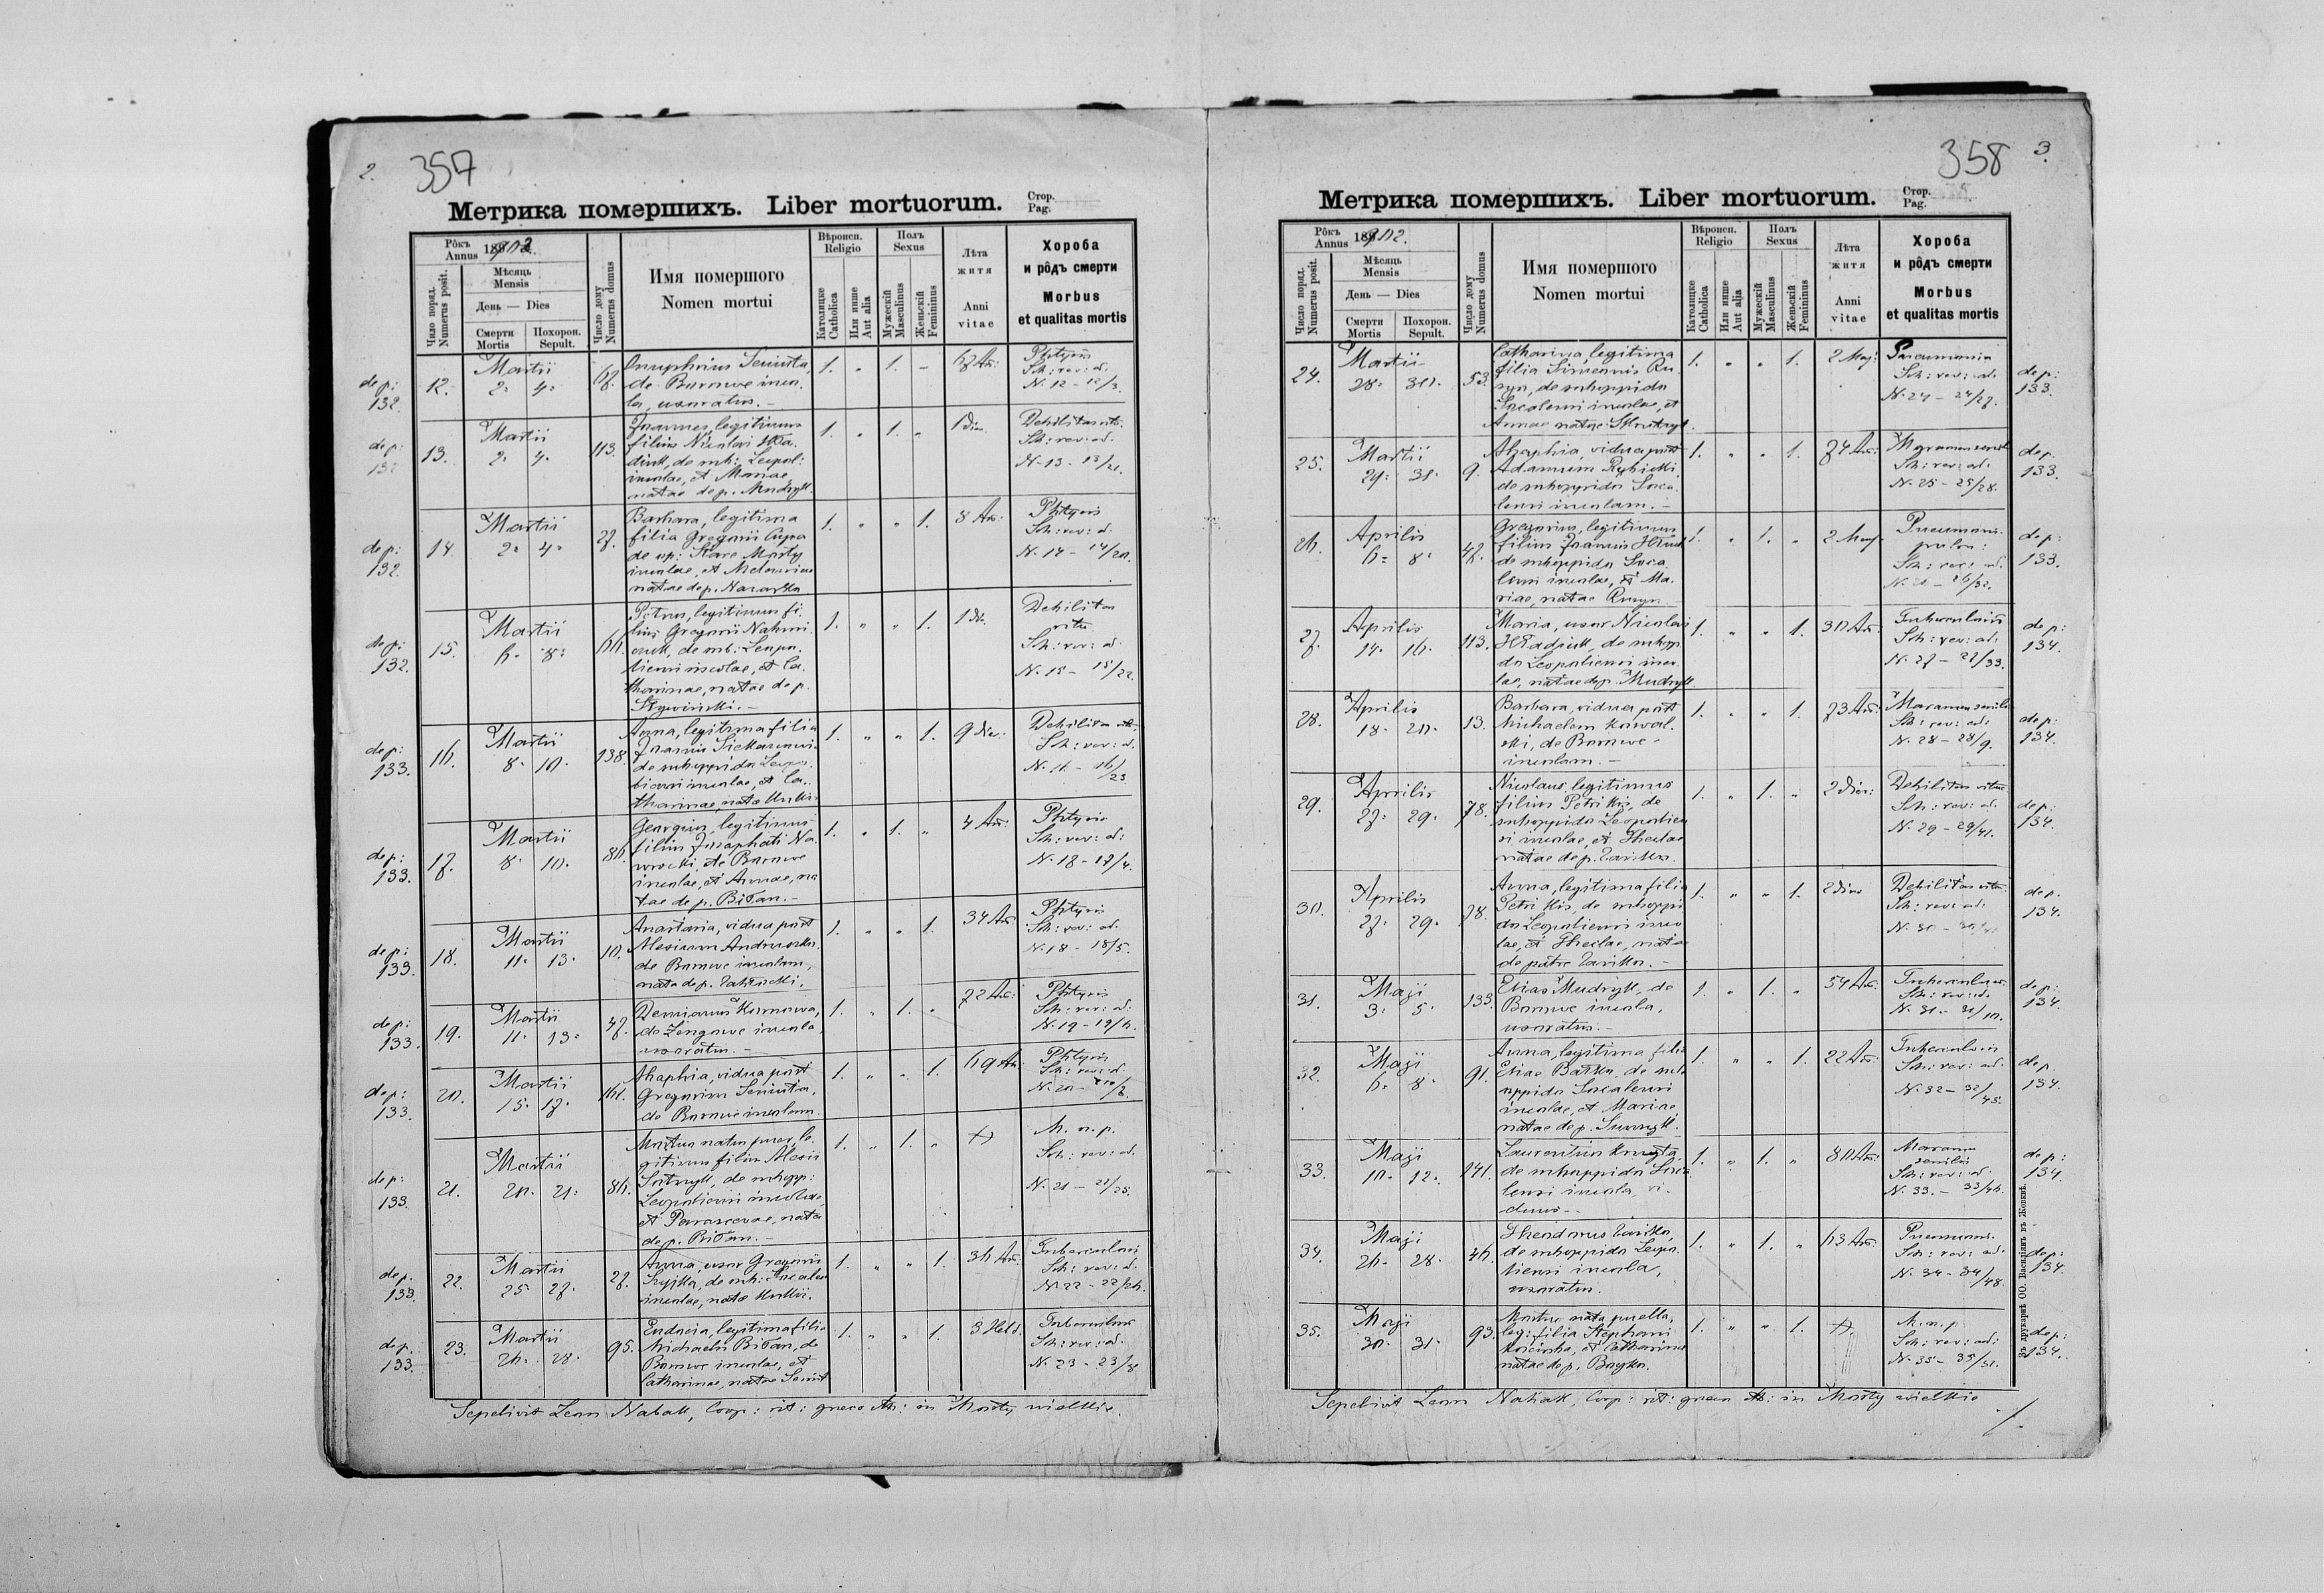 2.
357
Метрика помершихъ. Liber mortuorum.
Стор.
Pag.
Рôкъ
Annus 1902.
Число поряд.
Numerus posit.
Мѣсяць
Mensis
День — Dies
Смерти
Mortis
Похорон.
Sepult.
Число дому
Numerus domus
Имя помершого
Nomen mortui
Вѣроисп.
Religio
Католицке
Catholica
Или инше
Aut alia
Полъ
Sexus
Мужескій
Masculinus
Женьскій
Femininus
Лѣта
житя
Anni
vitae
Хороба
и рôдъ смерти
Morbus
et qualitas mortis
de p:
132.
12.
Martii
2. 4.
67.
Onuphrius
de Barnwe incu
la, uxoratus. –
1. „ 1. „
67 An:
Phtysis
Sch: rev: ad.
N. 12 – 12/3.
de p:
132
13.
Martii
2. 4.
113.
Joannes, legitimus
filius Nicolai Hła
diuk, de sub: Leopol:
incolae, et Mariae,
natae de p. Mudryk.
1. „ 1. „
1 Dies
Debilitas vitae
Sch: rev: ad.
N. 13 – 13/21.
de p:
132.
14.
Martii
2. 4.
27.
Barbara, legitima
filia Gregorii
de op: Stare Mosty
incolae, et
natae de p.
1. „ „ 1.
8 An:
Phtysis
Sch: rev: ad.
N. 14 – 14/20.
de p:
132.
15.
Martii
6. 8.
66.
Petrus, legitimus fi
lius Gregorii
de sub: Leopo
liensi incolae, et Ca
tharinae, natae de p.
1. „ „ 1.
1 Di.
Debilitas
vitae
Sch: rev: ad.
N. 15 – 15/22.
de p:
133.
16.
Martii
8. 10.
138.
Anna, legitima filia
Joannis
de suboppido Leopo
liensi incolae, et Ca
tharinae, natae
1. „ „ 1.
9 Dies:
Debilitas vitae
Sch: rev: ad.
N. 16 – 16/23.
de p:
133.
17.
Martii
8. 10.
86.
Georgius, legitimus
filius Josaphati Na
wrocki, de Barnwe
incolae, et Annae, na
tae de p. Biłan. –
1. „ 1. „
4 An:
Phtysis
Sch: rev: ad:
N. 18 – 17/4.
de p:
133.
18.
Martii
11. 13.
10.
Anastasia, vidua post
Alexium Andruszko
de Barnwe incolam,
nata de p.
1. „ „ 1.
34 An:
Phtysis
Sch: rev: ad.
N. 18 – 18/5.
de p:
133.
19.
Martii
11. 13.
47.
Demianus
de incola
uxoratus. –
1. „ 1. „
72 An:
Phtysis
Sch: rev: ad:
N. 19 – 19/6.
de p:
133.
20.
Martii
15. 17.
Ahaphia, vidua post
Gregorium
de Barnwe incolam.
1. „ „ 1.
69 An:
Phtysis
Sch: rev: ad.
N. 20 – 20/7.
de p:
133.
21.
Martii
20. 21.
86.
Mortuus natus puer, le
gitimus filius Alexii
de subopp:
Leopoliensi incolae,
et Parascevae, nata
de p. Biłan. –
1. „ 1. „
M. n. p.
Sch: rev: ad.
N. 21 – 21/25.
de p.
133.
22.
Martii
25. 27.
27.
Anna, uxor Gregorii
Szyjka, de sub:
incolae, nata
1. „ „ 1.
36 An.
Tuberculosis
Sch: rev: ad.
N. 22 – 22/26.
de p.
133.
23.
Martii
26. 28.
95.
Eudocia, legitima filia
Michaelis Biłan, de
Barnwe incolae, et
Catharinae, natae
1. „ „ 1.
3 Hebd.
Tuberculosis
Sch: rev: ad.
N. 23 – 23/8
Sepelivit Leon Nahak, Coop: rit: graeco cath: in Mosty wielkie.
358
3.
Метрика помершихъ. Liber mortuorum.
Стор.
Pag.
Рôкъ
Annus 1902.
Число поряд.
Numerus posit.
Мѣсяць
Mensis
День — Dies
Смерти
Mortis
Похорон.
Sepult.
Число дому
Numerus domus
Имя помершого
Nomen mortui
Вѣроисп.
Religio
Католицке
Catholica
Или инше
Aut alia
Полъ
Sexus
Мужескій
Masculinus
Женьскій
Femininus
Лѣта
житя
Anni
vitae
Хороба
и рôдъ смерти
Morbus
et qualitas mortis
24.
Martii
28. 30.
53.
Catharina, legitima
filia Simeonis Ru
syn, de suboppido
Socalensi incolae, et
Annae natae
1. „ „ 1.
2 Mens:
Pneumonia
Sch: rev: ad.
N. 24 – 24/27.
de p:
133.
25.
Martii
29. 31.
9.
Ahaphia, vidua post
Adamum Rybicki
de suboppido Soca
lensi incolam. –
1. „ „ 1.
74 An:
Marasmus senilis
Sch: rev: ad.
N. 25 – 25/28.
de p.
133.
26.
Aprilis
6. 8.
47.
Gregorius, legitimus
filius Joannis
de suboppido Soca
lensi incolae, et Ma
riae, natae Rusyn.
1. „ 1. „
2 Mens.
Pneumonia
Sch: rev: ad.
26/32.
de p:
133.
27.
Aprilis
14. 16.
113.
Maria, uxor Nicolai
Hładiuk, de subopp
do Leopoliensi inco
lae, nata de p. Mudryk.
1. „ „ 1.
30 An:
Tuberculosis
Sch: rev: ad.
N. 27 – 27/33.
de p:
134.
28.
Aprilis
18. 20.
13.
Barbara, vidua post
Michaelem Kowal
ski, de Barnwe
incolam. –
1. „ „ 1.
73 An:
Marasmus senilis
Sch: rev: ad:
N. 28 – 28/9.
de p:
134.
29.
Aprilis
27. 29.
78.
Nicolaus, legitimus
filius Petri Kis, de
suboppido Leopolien
si incolae, et Theclae
natae de p.
1. „ 1. „
2 Dies:
Debilitas vitae
Sch: rev: ad.
N. 29 – 29/41.
de p:
134.
30.
Aprilis
27. 29.
78.
Anna, legitima filia
Petri Kis, de suboppi
do Leopoliensi inco
lae, et Theclae, nata
de patre
1. „ „ 1.
2 Dies
Debilitas vitae
Sch: rev: ad.
de p.
134.
31.
Maji
3. 5.
133.
Elias Mudryk, de
Barnwe incola,
uxoratus. –
1. „ 1. „
54 An.
Tuberculosis
Sch: rev: ad.
N. 31 – 31/10.
de p:
134.
32.
Maji
6. 8.
91.
Anna, legitima filia
Eliae de sub
oppido Socalensi
incolae, et Mariae
natae de p.
1. „ „ 1.
22 An:
Tuberculosis
Sch: rev: ad.
N. 32 – 32/45.
de p.
134.
33.
Maji
10. 12.
141.
Laurentius
de suboppido Soca
lensi incola, vi
duus –
1. „ 1. „
80 An:
Marasmus
senilis
Sch: rev: ad.
N. 33. – 33/46.
de p:
134.
34.
Maji
26. 28.
46.
Theodorus
de suboppido Leopo
liensi incola,
uxoratus.
1. „ 1. „
63 An:
Pneumoni.
Sch: rev: ad.
N. 34 – 34/48.
de p:
134.
35.
Maji
30. 31.
93.
Mortua nata puella,
leg: filia Stephani
et Catharinae
natae de p.
1. „ „ 1.
M. n. p.
Sch: rev: ad:
N. 35 – 35/51.
de p:
134.
Зъ друкарнѣ ОО. Василіянъ въ Жовквѣ.
Sepelivit Leon Nahak, Coop: rit: graeco cath: in Mosty wielkie